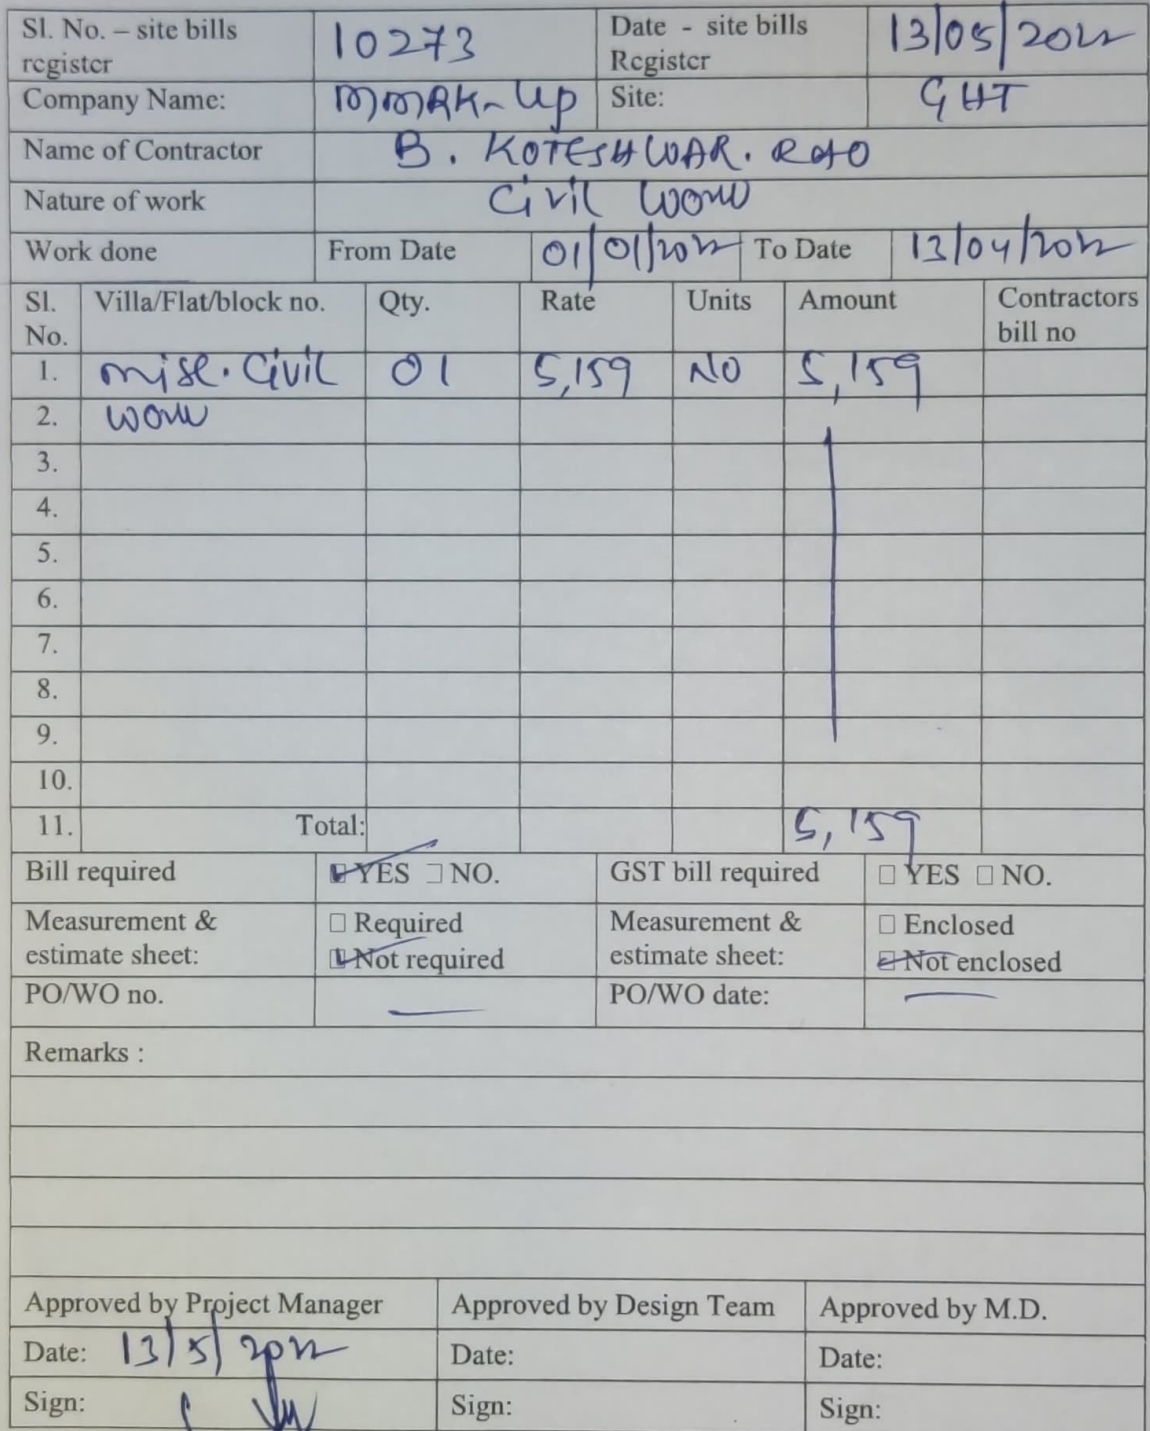 Sl. No. – site bills register 10273 Date - site bills Register 13/05/2022
Company Name: MMRK-Up Site: GHT
Name of Contractor B. KOTESHWAR. RAO
Nature of work Civil Work
Work done From Date 01/01/2022 To Date 13/04/2022
Sl. No. Villa/Flat/block no. Qty. Rate Units Amount Contractors bill no
1. misc. Civil 01 5,159 NO 5,159
2. work
3.
4.
5.
6.
7.
8.
9.
10.
11. Total: 5,159
Bill required YES NO. GST bill required YES NO.
Measurement & estimate sheet: Required Not required Measurement & estimate sheet: Enclosed Not enclosed
PO/WO no. — PO/WO date: —
Remarks :
Approved by Project Manager Approved by Design Team Approved by M.D.
Date: 13/5/2022 Date: Date:
Sign: Sign: Sign: